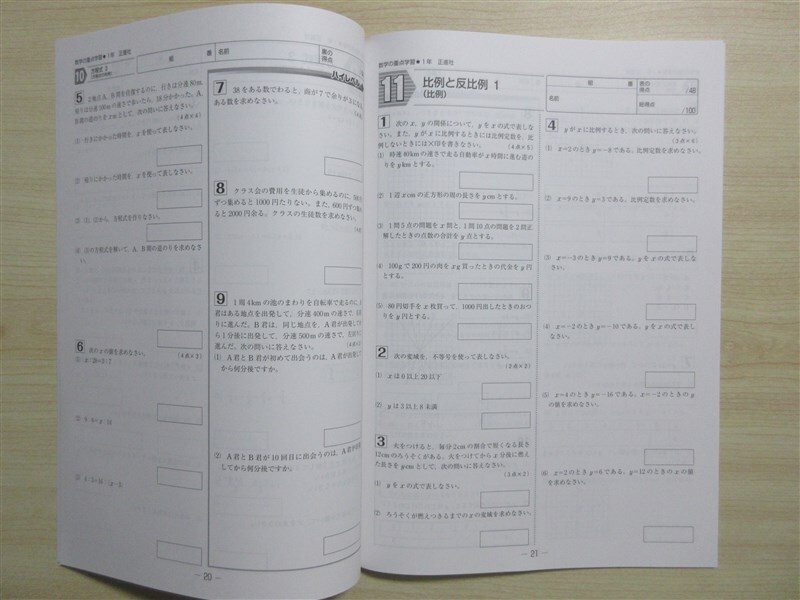 数学の重点学習★1年 正進社
組 番 名前
10 方程式 3
5 2地点A，B間を往復するのに，行きは分速80m，
帰りは分速100mの速さで歩いたら，18分かかった。A，
B間の道のりをxmとして，次の問いに答えなさい。
(4点×4)
(1) 行きにかかった時間を，xを使って表しなさい。
(2) 帰りにかかった時間を，xを使って表しなさい。
(3) (1)，(2)から，方程式を作りなさい。
(4) (3)の方程式を解いて，A，B間の道のりを求めなさ
い。
6 次のxの値を求めなさい。
(4点×3)
(1)
(2)
(3)
ハイレベル
7 38をある数でわると，商が7で余りが3
ある数を求めなさい。
8 クラス会の費用を生徒から集めるのに，
ずつ集めると1000円たりない。また，600円ず
ると2000円余る。クラスの生徒数を求めなさい。
9 1周4kmの池のまわりを自転車で走るのに，A
君はある地点を出発して，分速400mの速さで，
りに進んだ。B君は，同じ地点を，A君が出発し
ら1分後に出発して，分速500mの速さで，左
進んだ。次の問いに答えなさい。
(1) A君とB君が初めて出会うのは，A君が
から何分後ですか。
(2) A君とB君が10回目に出会うのは，A君が
してから何分後ですか。
― 20 ―
数学の重点学習★1年 正進社
11 比例と反比例 1
(比例)
組 番
名前
表の
得点
/48
総得点
/100
1 次のx，yの関係について，yをxの式で表しな
さい。また，yがxに比例するときには比例定数を，比
例しないときには×印を書きなさい。
(4点×5)
(1) 時速40kmの速さで走る自動車がx時間に進む道の
りをykmとする。
(2) 1辺xcmの正方形の周の長さをycmとする。
(3) 1問5点の問題をx問と，1問10点の問題を2問正
解したときの点数の合計をy点とする。
(4) 100gで200円の肉をxg買ったときの代金をy円
とする。
(5) 80円切手をx枚買って，1000円出したときのおつ
りをy円とする。
2 次の変域を，不等号を使って表しなさい。
(2点×2)
(1) xは6以上20以下
(2) yは3以上8未満
3 火をつけると，毎分2cmの割合で短くなる長さ
12cmのろうそくがある。火をつけてからx分後に燃え
た長さをycmとして，次の問いに答えなさい。
(3点×2)
(1) yをxの式で表しなさい。
(2) ろうそくが燃えつきるまでのxの変域を求めなさい。
4 yがxに比例するとき，次の問いに答えなさい。
(3点×6)
(1) x=2のときy=-8である。比例定数を求めなさい。
(2) x=9のときy=3である。比例定数を求めなさい。
(3) x=-3のときy=9である。yをxの式で表しなさ
い。
(4) x=-2のときy=-10である。yをxの式で表し
なさい。
(5) x=4のときy=-16である。x=-2のときのy
の値を求めなさい。
(6) x=2のときy=6である。y=12のときのxの値
を求めなさい。
― 21 ―